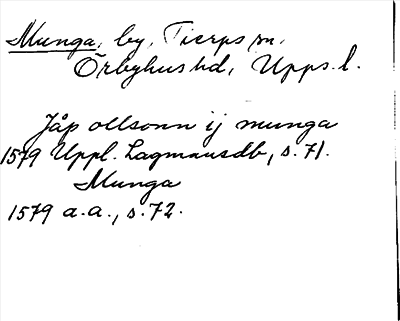 Munga, by, Tierps sn,
Örbyhus hd, Upps. l.
Jåp ollsonn ij munga
1579 Uppl. Lagmansdb, s. 71.
Munga
1579 a.a., s. 72.